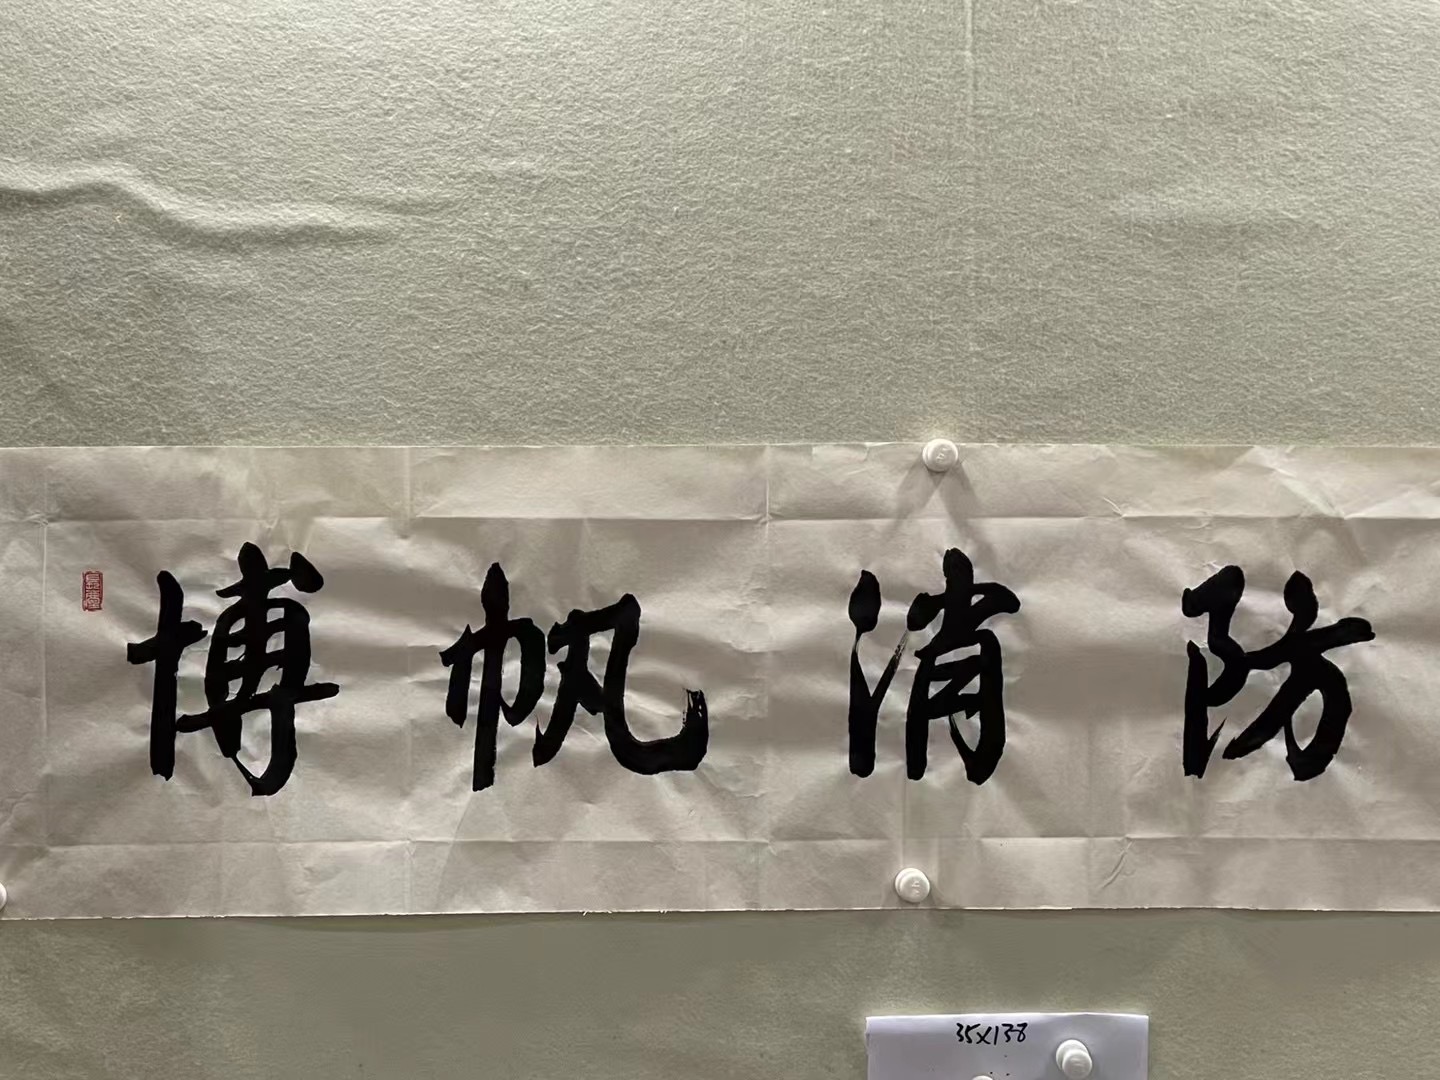 博帆消防
35×138